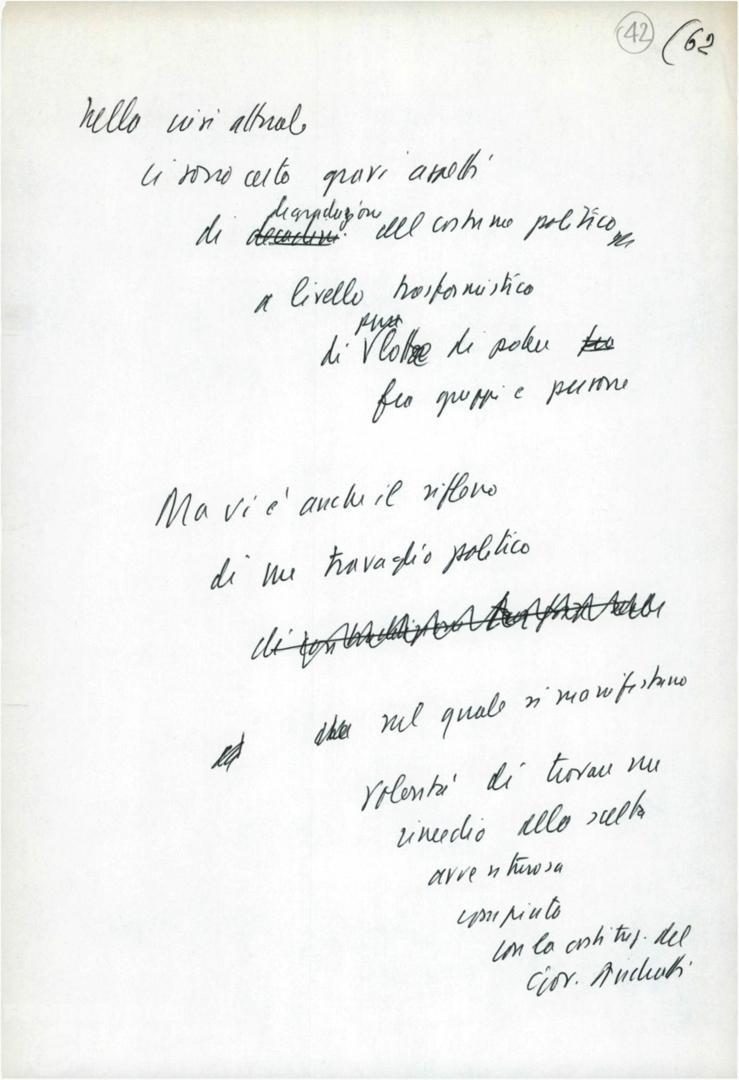 42 (62
nella crisi attuale
ci sono certo gravi aspetti
degradazione
di decadim. del costume politico
a livello trasformistico
pura
di V lotta di potere fra
fra gruppi e persone
Ma vi è anche il riflesso
di un travaglio politico
di
nel quale si manifestano
volontà di trovare un
rimedio alla scelta
avventurosa
compiuta
con la costituz. del
Gov. Andreotti